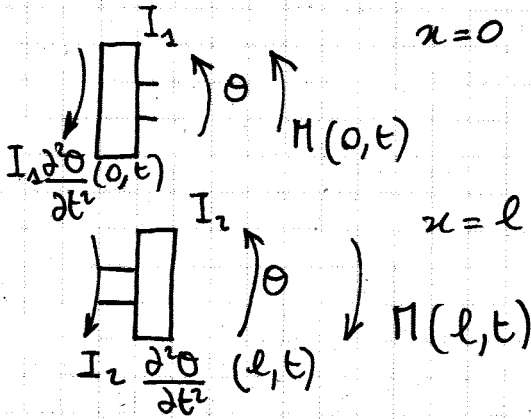 I₁ x=0
θ M(0,t)
I₁ ∂²θ/∂t² (0,t)
I₂ x=l
θ M(l,t)
I₂ ∂²θ/∂t² (l,t)